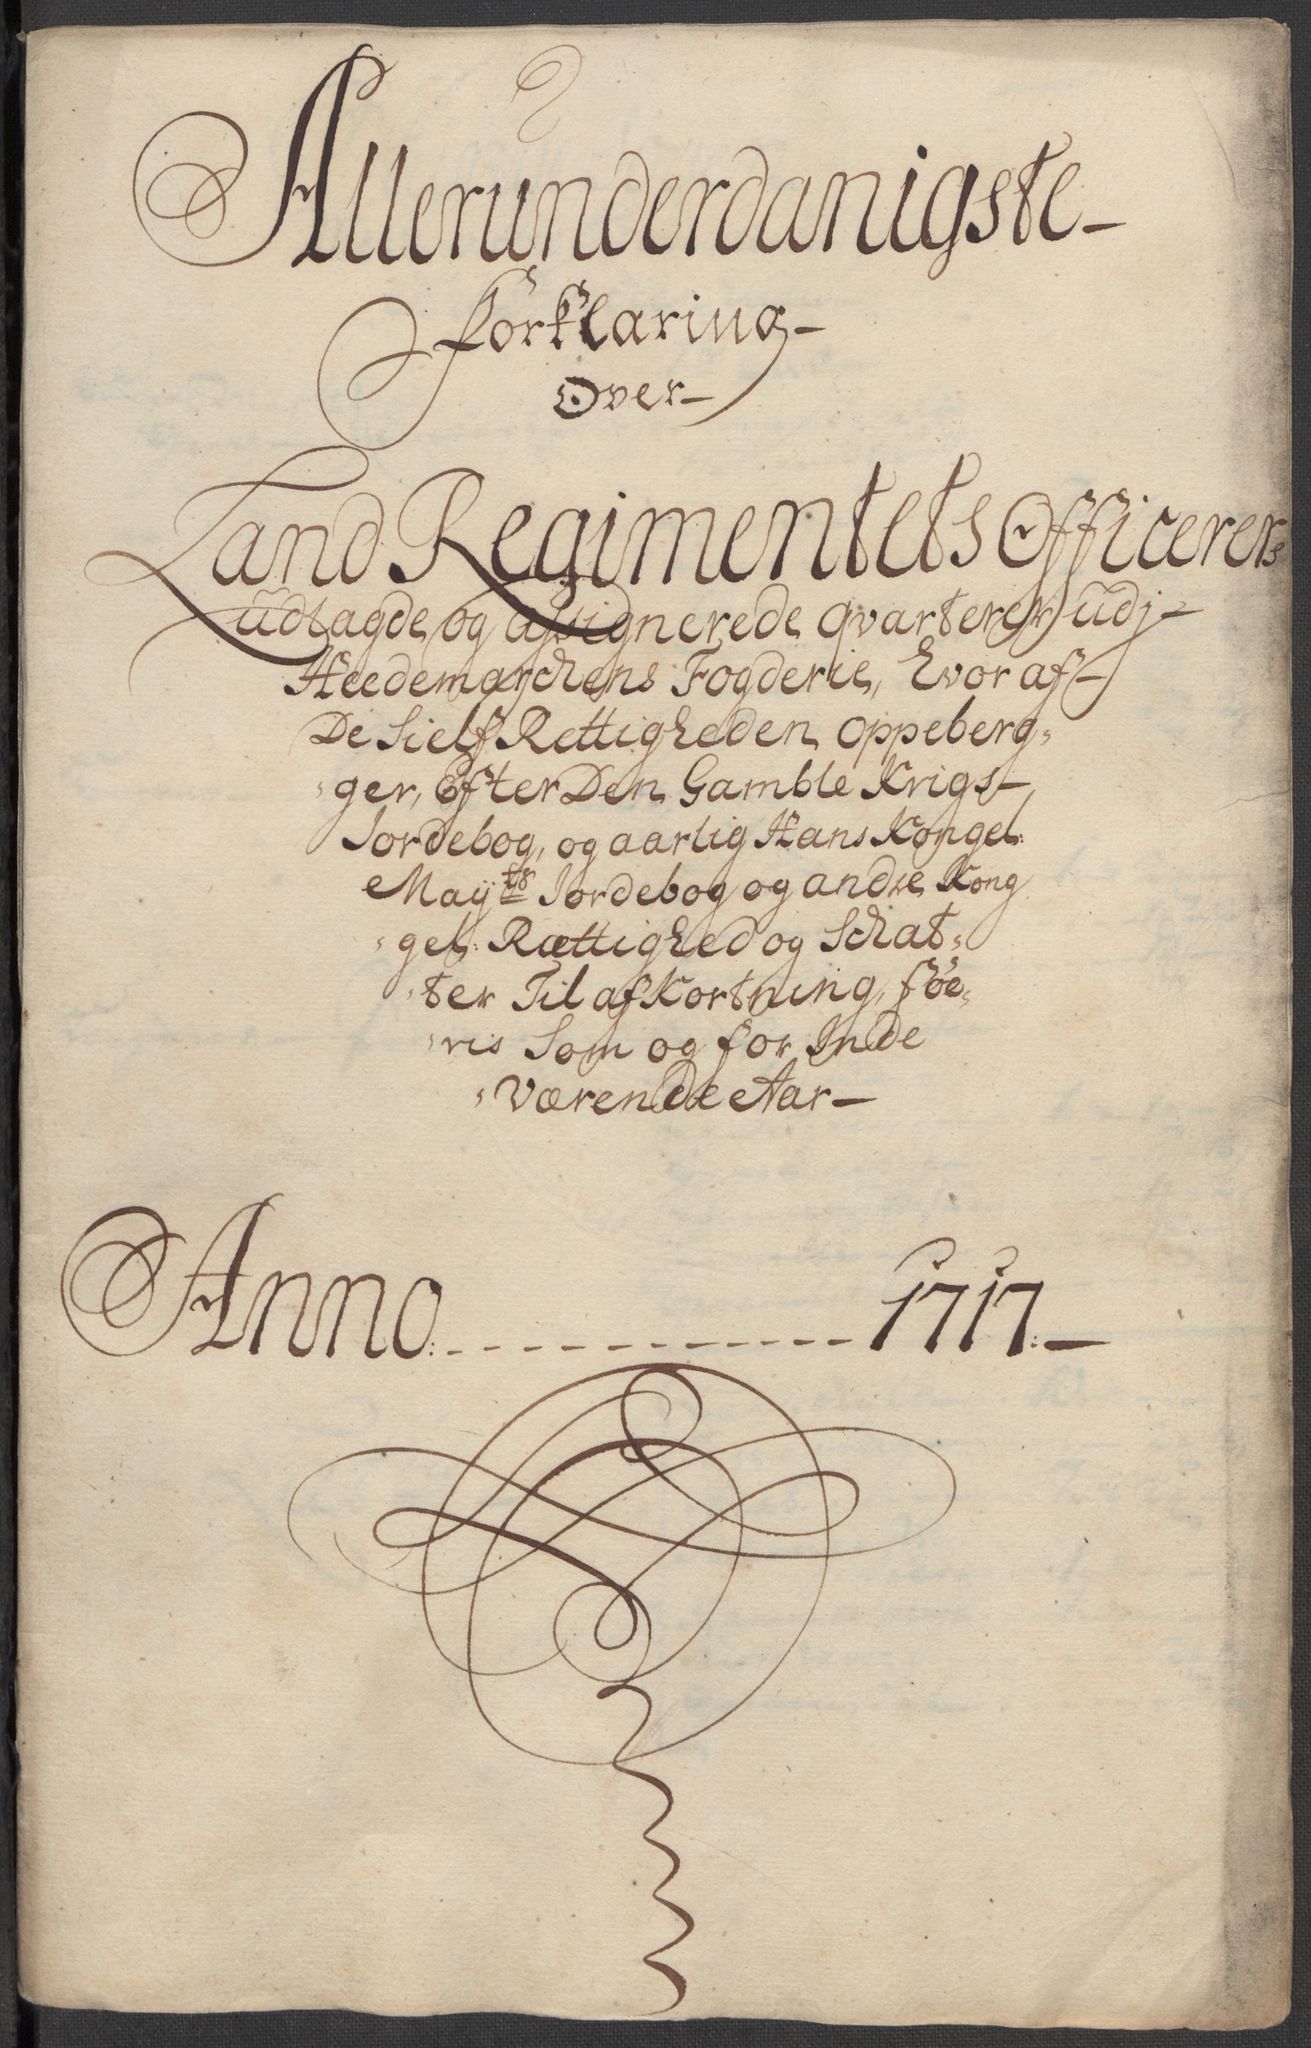 Allerunderdanigste
forklaring
Over
Land Regimentets Officerers
udtagde og assignerede qvarterer udj
Heedemarchens Fogderie, hvor af
De Sielf Rettigheden oppeberg-
ger, Efter Den Gamble Krigs
Jordebog, og aarlig Hans Kongel:
Mayts Jordebog og andre Kong
gel: Rættighed og Schat-
ter Til afkortning, föe-
ris Som og for Inde
Værende Aar
Anno: 1717: